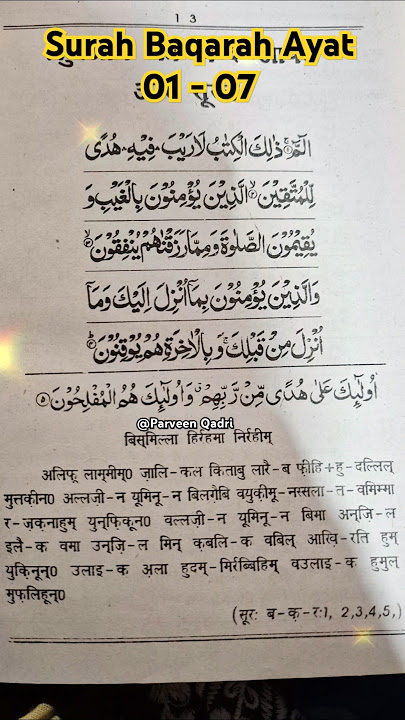 1 3
Surah Baqarah Ayat
01 - 07
الٓمّٓ ۚ ذٰلِكَ الْكِتٰبُ لَا رَيْبَ ۛ فِيْهِ ۛ هُدًى
لِّلْمُتَّقِيْنَ ۙ۲ الَّذِيْنَ يُؤْمِنُوْنَ بِالْغَيْبِ وَ
يُقِيْمُوْنَ الصَّلٰوةَ وَمِمَّا رَزَقْنٰهُمْ يُنْفِقُوْنَ ۙ۳
وَالَّذِيْنَ يُؤْمِنُوْنَ بِمَاۤ اُنْزِلَ اِلَيْكَ وَمَاۤ
اُنْزِلَ مِنْ قَبْلِكَ ۚ وَبِالْاٰخِرَةِ هُمْ يُوْقِنُوْنَ ؕ۴
اُولٰٓئِكَ عَلٰى هُدًى مِّنْ رَّبِّهِمْ ۙ وَاُولٰٓئِكَ هُمُ الْمُفْلِحُوْنَ ۵
@Parveen Qadri
बिसमिल्ला हिरहमा निर्रहीम्
अलिफ़् लाम्मीम्० ज़ालि-कल किताबु लारै-ब फ़ीहि+हु-दल्लिल्
मुत्तक़ीन० अल्लज़ी-न यूमिनू-न बिलगै़बि वयुक़ीमू-नस्सला-त-वमिम्मा
र-ज़क़नाहुम् युनफ़िक़ून० वल्लज़ी-न यूमिनू-न बिमा अन्ज़ि-ल
इलै-क वमा उन्ज़ि-ल मिन् क़बलि-क वबिल् आख़ि-रति हुम्
युक़िनून्० उलाइ-क अ़ला हुदम्-मिर्रब्बिहिम् वउलाइ-क हुमुल्
मुफ़लिहून्०
(सूरः ब-क़-रः1, 2,3,4,5,)